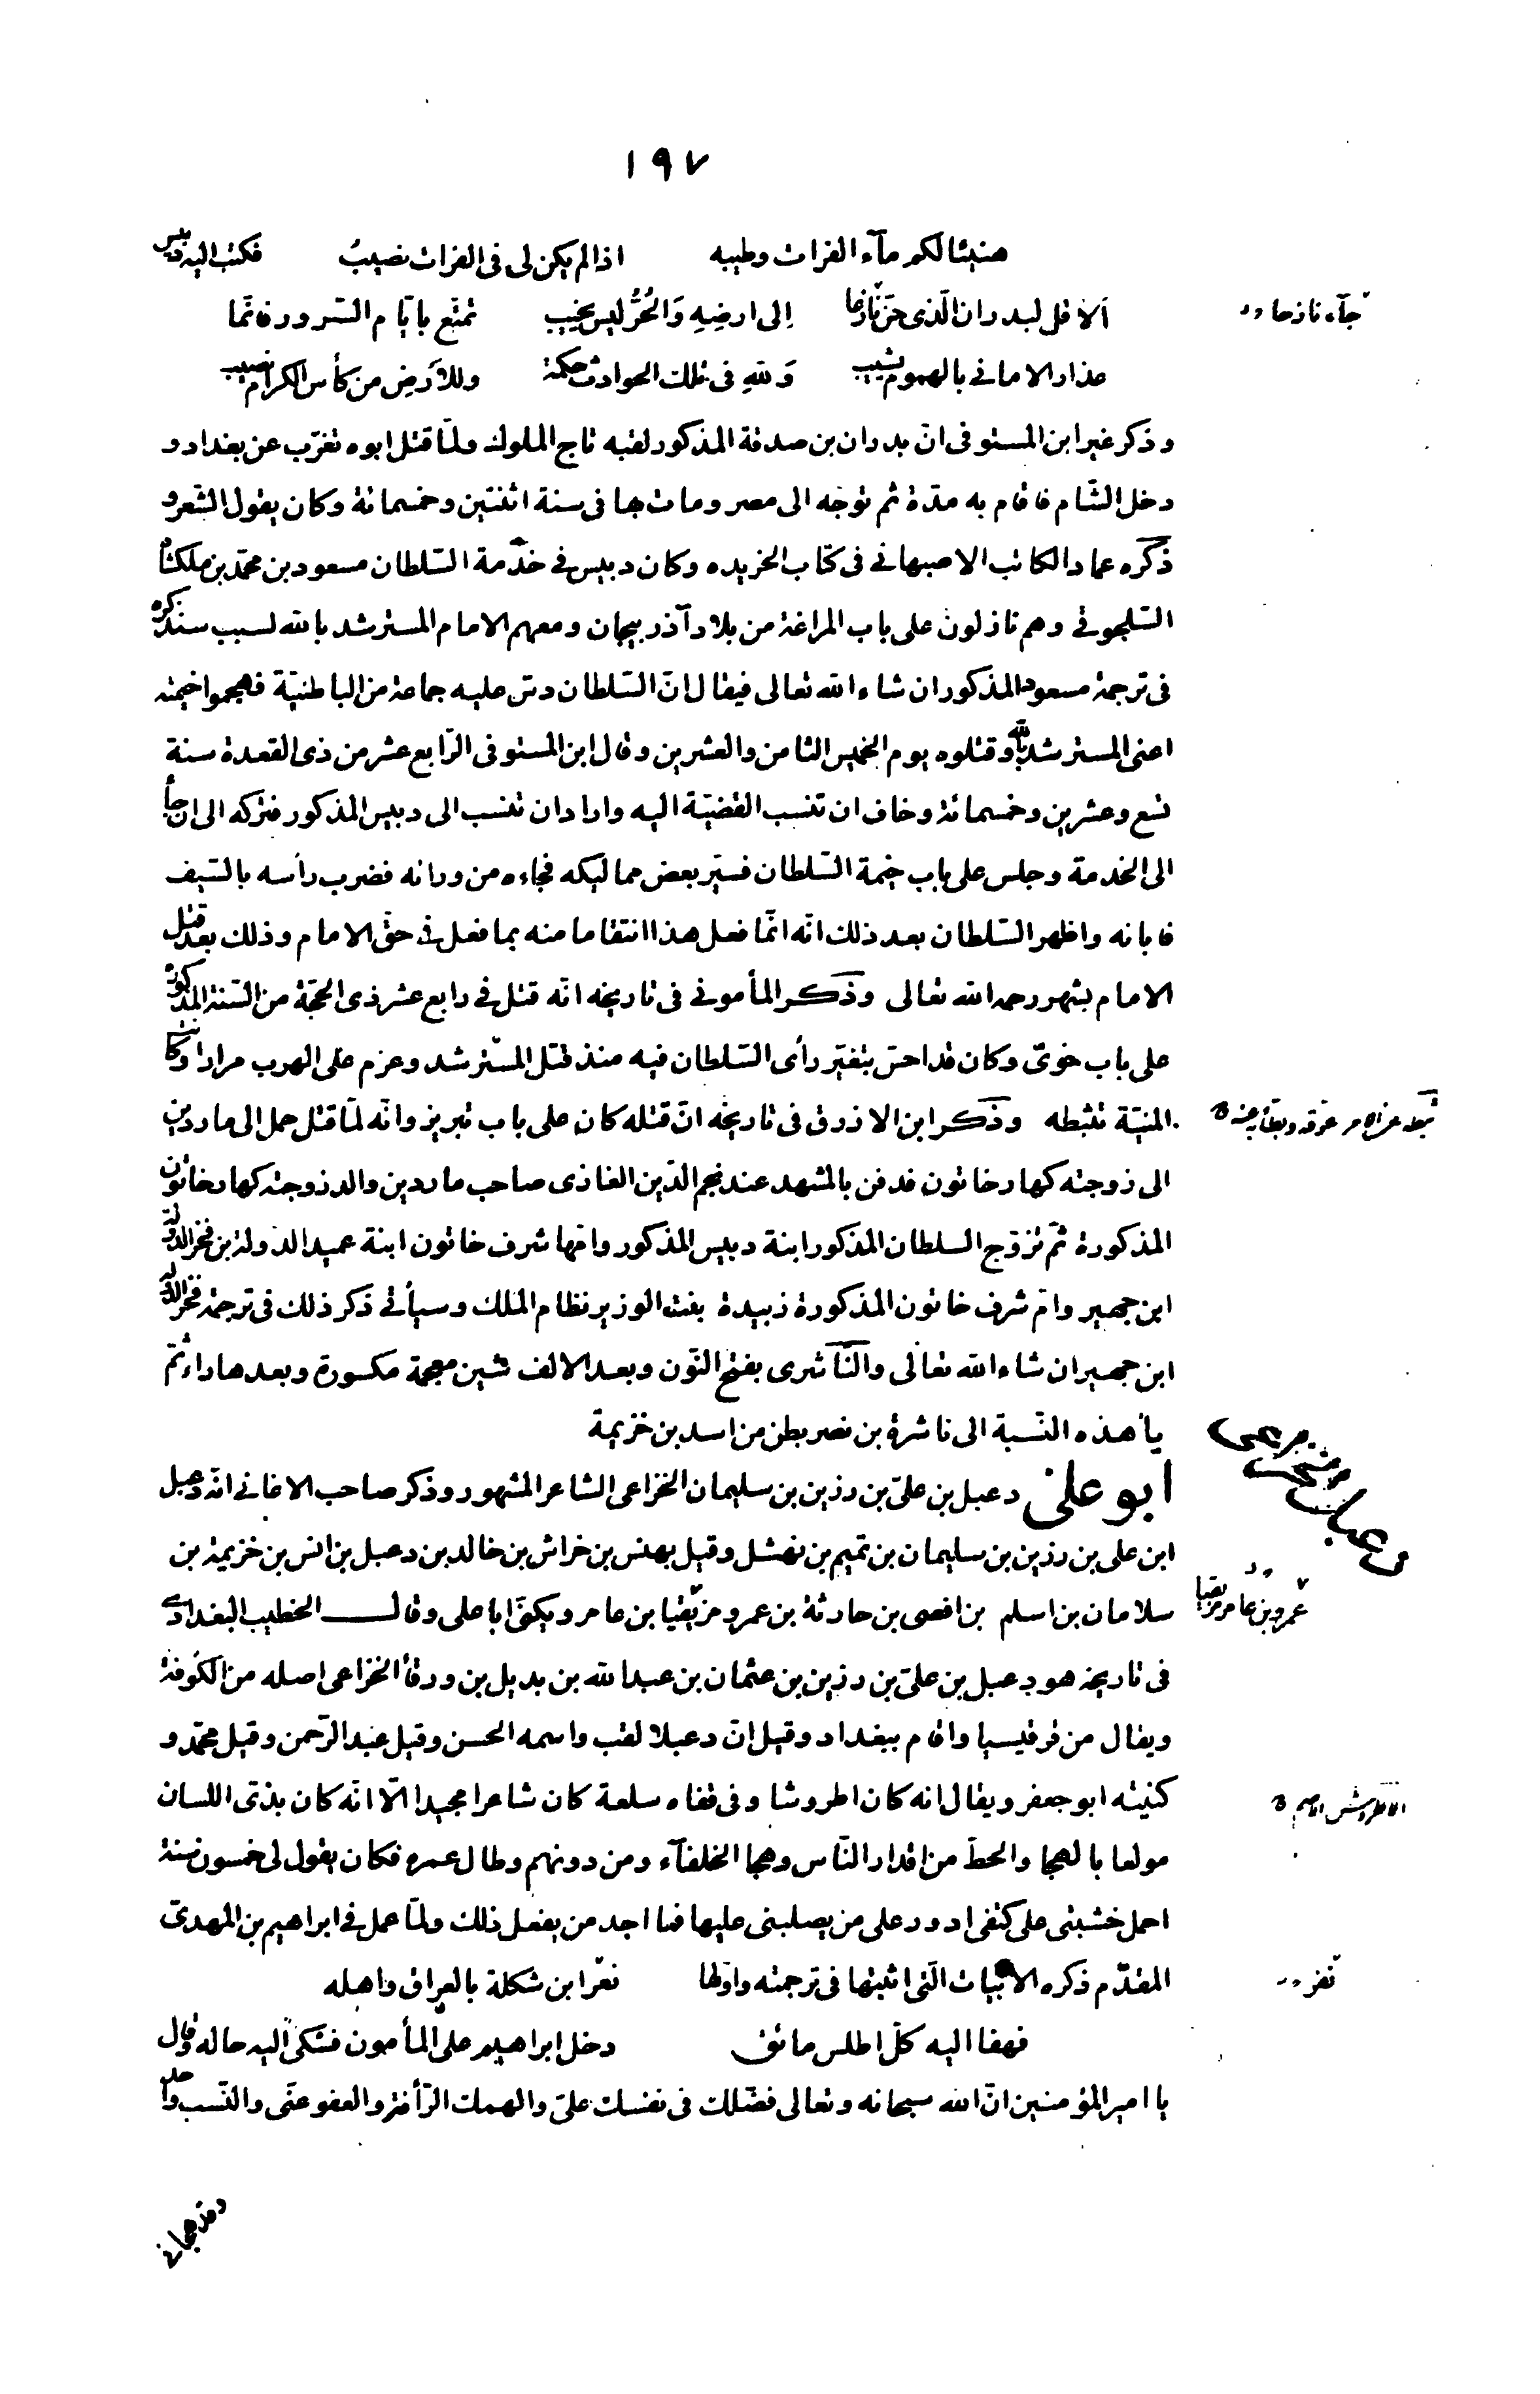 ١٩٧
هنيئا لكم مآء الفرات وطيبه اذا لم يكن لى فى الفرات نصيب فكتب اليه دبيس
ألا قل لبدران الّذى حنّ نازعا إلى ارضِهِ وَالحُرُّ ليس يخيب تمتّع بايّام السّرور فانّما
عذار الامانى بالهموم يشيب وَللهِ فى تلك الحوادث حكمة وللأرَضِ من كأس الكرام نصيب
جآء نازحا
وذكر غير ابن المستوفى انّ بدران بن صدقة المذكور لقبه تاج الملوك ولمّا قتل ابوه تغرّب عن بغداد و
دخل الشّام فاقام به مدّة ثم توجّه الى مصر ومات بها فى سنة اثنتين وخمسمائة وكان يقول الشّعر و
ذكره عماد الكاتب الاصبهانى فى كتاب الخريده وكان دبيس فى خدمة السّلطان مسعود بن محمّد بن ملكشاه
السّلجوقى وهم نازلون على باب المراغة من بلاد آذربيجان ومعهم الامام المسترشد بالله لسبب سنذكره
فى ترجمة مسعود المذكور ان شاء الله تعالى فيقال انّ السّلطان دسّ عليه جماعة من الباطنيّة فهجموا خيمته
اعنى المسترشد بالله وقتلوه يوم الخميس الثامن والعشرين وقال ابن المستوفى الرّابع عشر من ذى القعدة سنة
تسع وعشرين وخمسمائة وخاف ان تنسب القضيّة اليه واراد ان تنسب الى دبيس المذكور فتركه الى ان جآء
الى الخدمة وجلس على باب خيمة السّلطان فسيّر بعض مماليكه فجاءه من ورائه فضرب رأسه بالسّيف
فابانه واظهر السّلطان بعد ذلك انّه انّما فعل هذا انتقاما منه بما فعل فى حقّ الامام وذلك بعد قتل
الامام بشهر رحمه الله تعالى وذكر المأمونى فى تاريخه انّه قتل فى رابع عشر ذى الحجّة من السّنة المذكورة
على باب خوىّ وكان قد احسّ بتغيّر رأى السّلطان فيه منذ قتل المسترشد وعزم على الهرب مرارا وكانت
المنيّة تثبطه وذكر ابن الازرق فى تاريخه انّ قتله كان على باب تبريز وانّه لمّا قتل حمل الى ماردين
ثبطه عن الامر عوقه وبطأ به عنه
الى زوجته كهارخاتون فدفن بالمشهد عند نجم الدّين الغازى صاحب ماردين والد زوجته كهارخاتون
المذكورة ثمّ تزوّج السلطان المذكور ابنة دبيس المذكور وامّها شرف خاتون ابنة عميد الدّولة بن فخر الدّولة
ابن جهير وامّ شرف خاتون المذكورة زبيدة بنت الوزير نظام الملك وسيأتى ذكر ذلك فى ترجمة فخر الدّولة
ابن جهير ان شاء الله تعالى والنّاشرى بفتح النّون وبعد الالف شين معجمة مكسورة وبعدها راء ثمّ
ياء هذه النّسبة الى ناشرة بن نصر بطن من اسد بن خزيمة
أبو علىّ دعبل بن علىّ بن رزين بن سليمان الخزاعى الشاعر المشهور وذكر صاحب الاغانى انّه دعبل
ابن على بن رزين بن سليمان بن تميم بن نهشل وقيل بهنس بن خراش بن خالد بن دعبل بن انس بن خزيمة بن
سلامان بن اسلم بن افصى بن حارثة بن عمرو مزيقيا بن عامر ويكنّى ابا على وقال الخطيب البغدادى
عمرو بن عامر مزيقيا
فى تاريخه هو دعبل بن علىّ بن رزين بن عثمان بن عبد الله بن بديل بن ورقأ الخزاعى اصله من الكوفة
ويقال من قرقيسيا واقام ببغداد وقيل انّ دعبلا لقب واسمه الحسن وقيل عبد الرّحمن وقيل محمّد و
كنيته ابو جعفر ويقال انه كان اطروشا وفى قفاه سلعة كان شاعرا مجيدا الّا انّه كان بذىّ اللسان
الاطروش الاصم
مولعا بالهجا والحطّ من اقدار النّاس وهجا الخلفآء ومن دونهم وطال عمره فكان يقول لى خمسون سنة
احمل خشبتى على كتفى ادور على من يصلبنى عليها فما اجد من يفعل ذلك ولمّا عمل فى ابراهيم بن المهدىّ
المقدّم ذكره الابيات الّتى اثبتها فى ترجمته واوّلها نعرّ ابن شكلة بالعراق واهله
نفر
فهفا اليه كلّ اطلس مائق دخل ابراهيم على المأمون فشكى اليه حاله وقال
يا امير المؤمنين انّ الله سبحانه وتعالى فضّلك فى نفسك علىّ والهمك الرّأفة والعفو عنّى والنّسب واحد
وقد هجانى